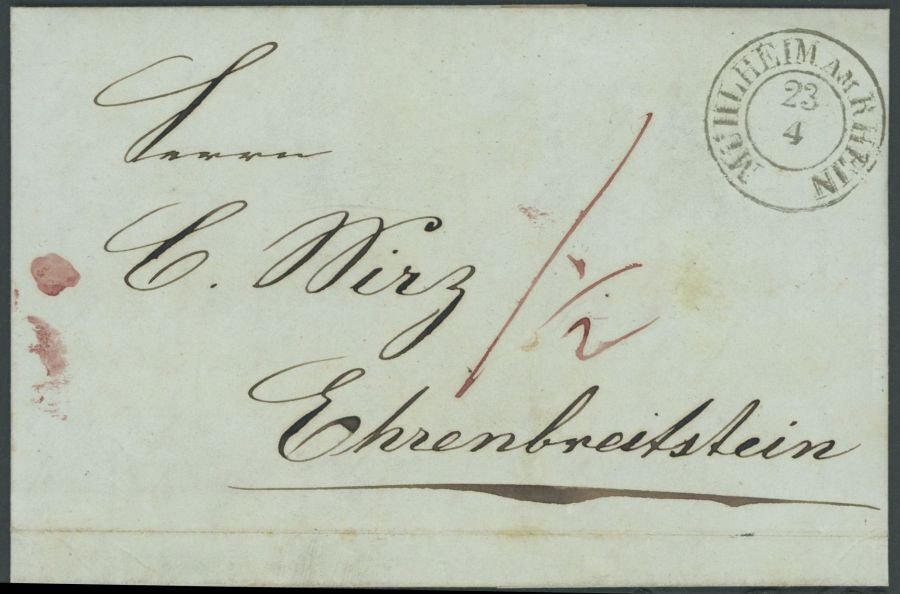 MÜHLHEIM AM RHEIN
23
4
Herrn
C. Wirz
1 1/2
Ehrenbreitstein